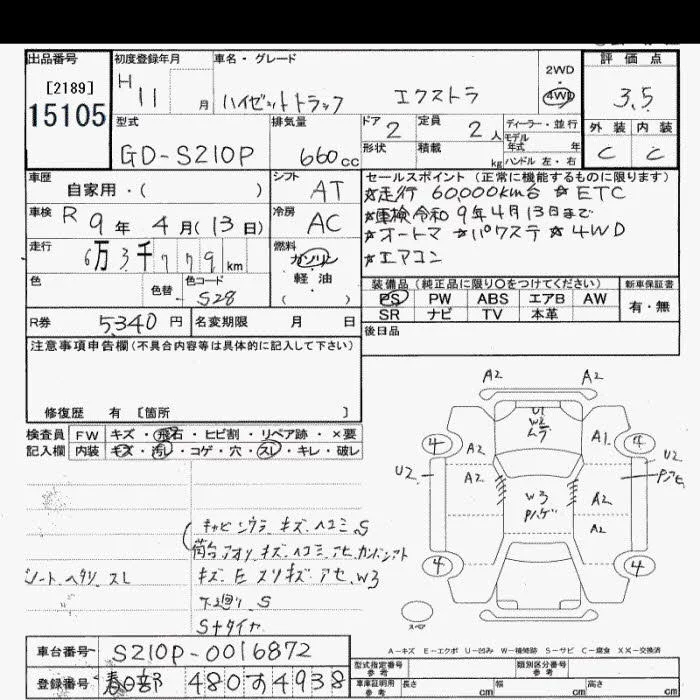 出品番号 初度登録年月 車名・グレード 2WD・4WD 評価点
[2189] H 11 月 ハイゼットトラック エクストラ 3.5
15105
型式 排気量 ドア 2 定員 2人 ディーラー・並行 外装 内装
GD-S210P 660cc 形状 積載 kg モデル年式 年 C C
ハンドル 左・右
車歴 シフト セールスポイント(正常に機能するものに限ります)
自家用・( ) AT ☆走行 60,000km台 ☆ETC
車検 R 9年 4月(13日) 冷房 AC ☆車検令和9年4月13日まで
☆オートマ ☆パワステ ☆4WD
走行 6万3千779km 燃料 ガソリン・軽油 ( ) ☆エアコン
色 色替 色コード S28
装備品(純正品に限り〇をつけてください) 新車保証書
PS PW ABS エアB AW 有・無
SR ナビ TV 本革
R券 5,340円 名変期限 月 日 後日品
注意事項申告欄(不具合内容等は具体的に記入して下さい)
修復歴 有 [箇所 ]
検査員 FW キズ・飛石・ヒビ割・リペア跡・×要
記入欄 内装 キズ・汚レ・コゲ・穴・スレ・キレ・破レ
A2 A2
U1
W2
4 4
A2 A1
U2 U2
A2 W3 A2
Pハゲ
A2
4 4
スペア
キャビンウラ キズ ヘコミ S
荷台アオリ キズ ヘコミ
シート ヘタリ スレ
下廻り S
Sタイヤ
A-キズ E-エクボ U-凹み W-補修跡 S-サビ C-腐食 XX-交換済
車台番号 S210P-0016872
登録番号 春日部 480 す 4938
型式指定番号 参考 類別区分番号 参考
車庫証明用 参考 長さ cm 幅 cm 高さ cm